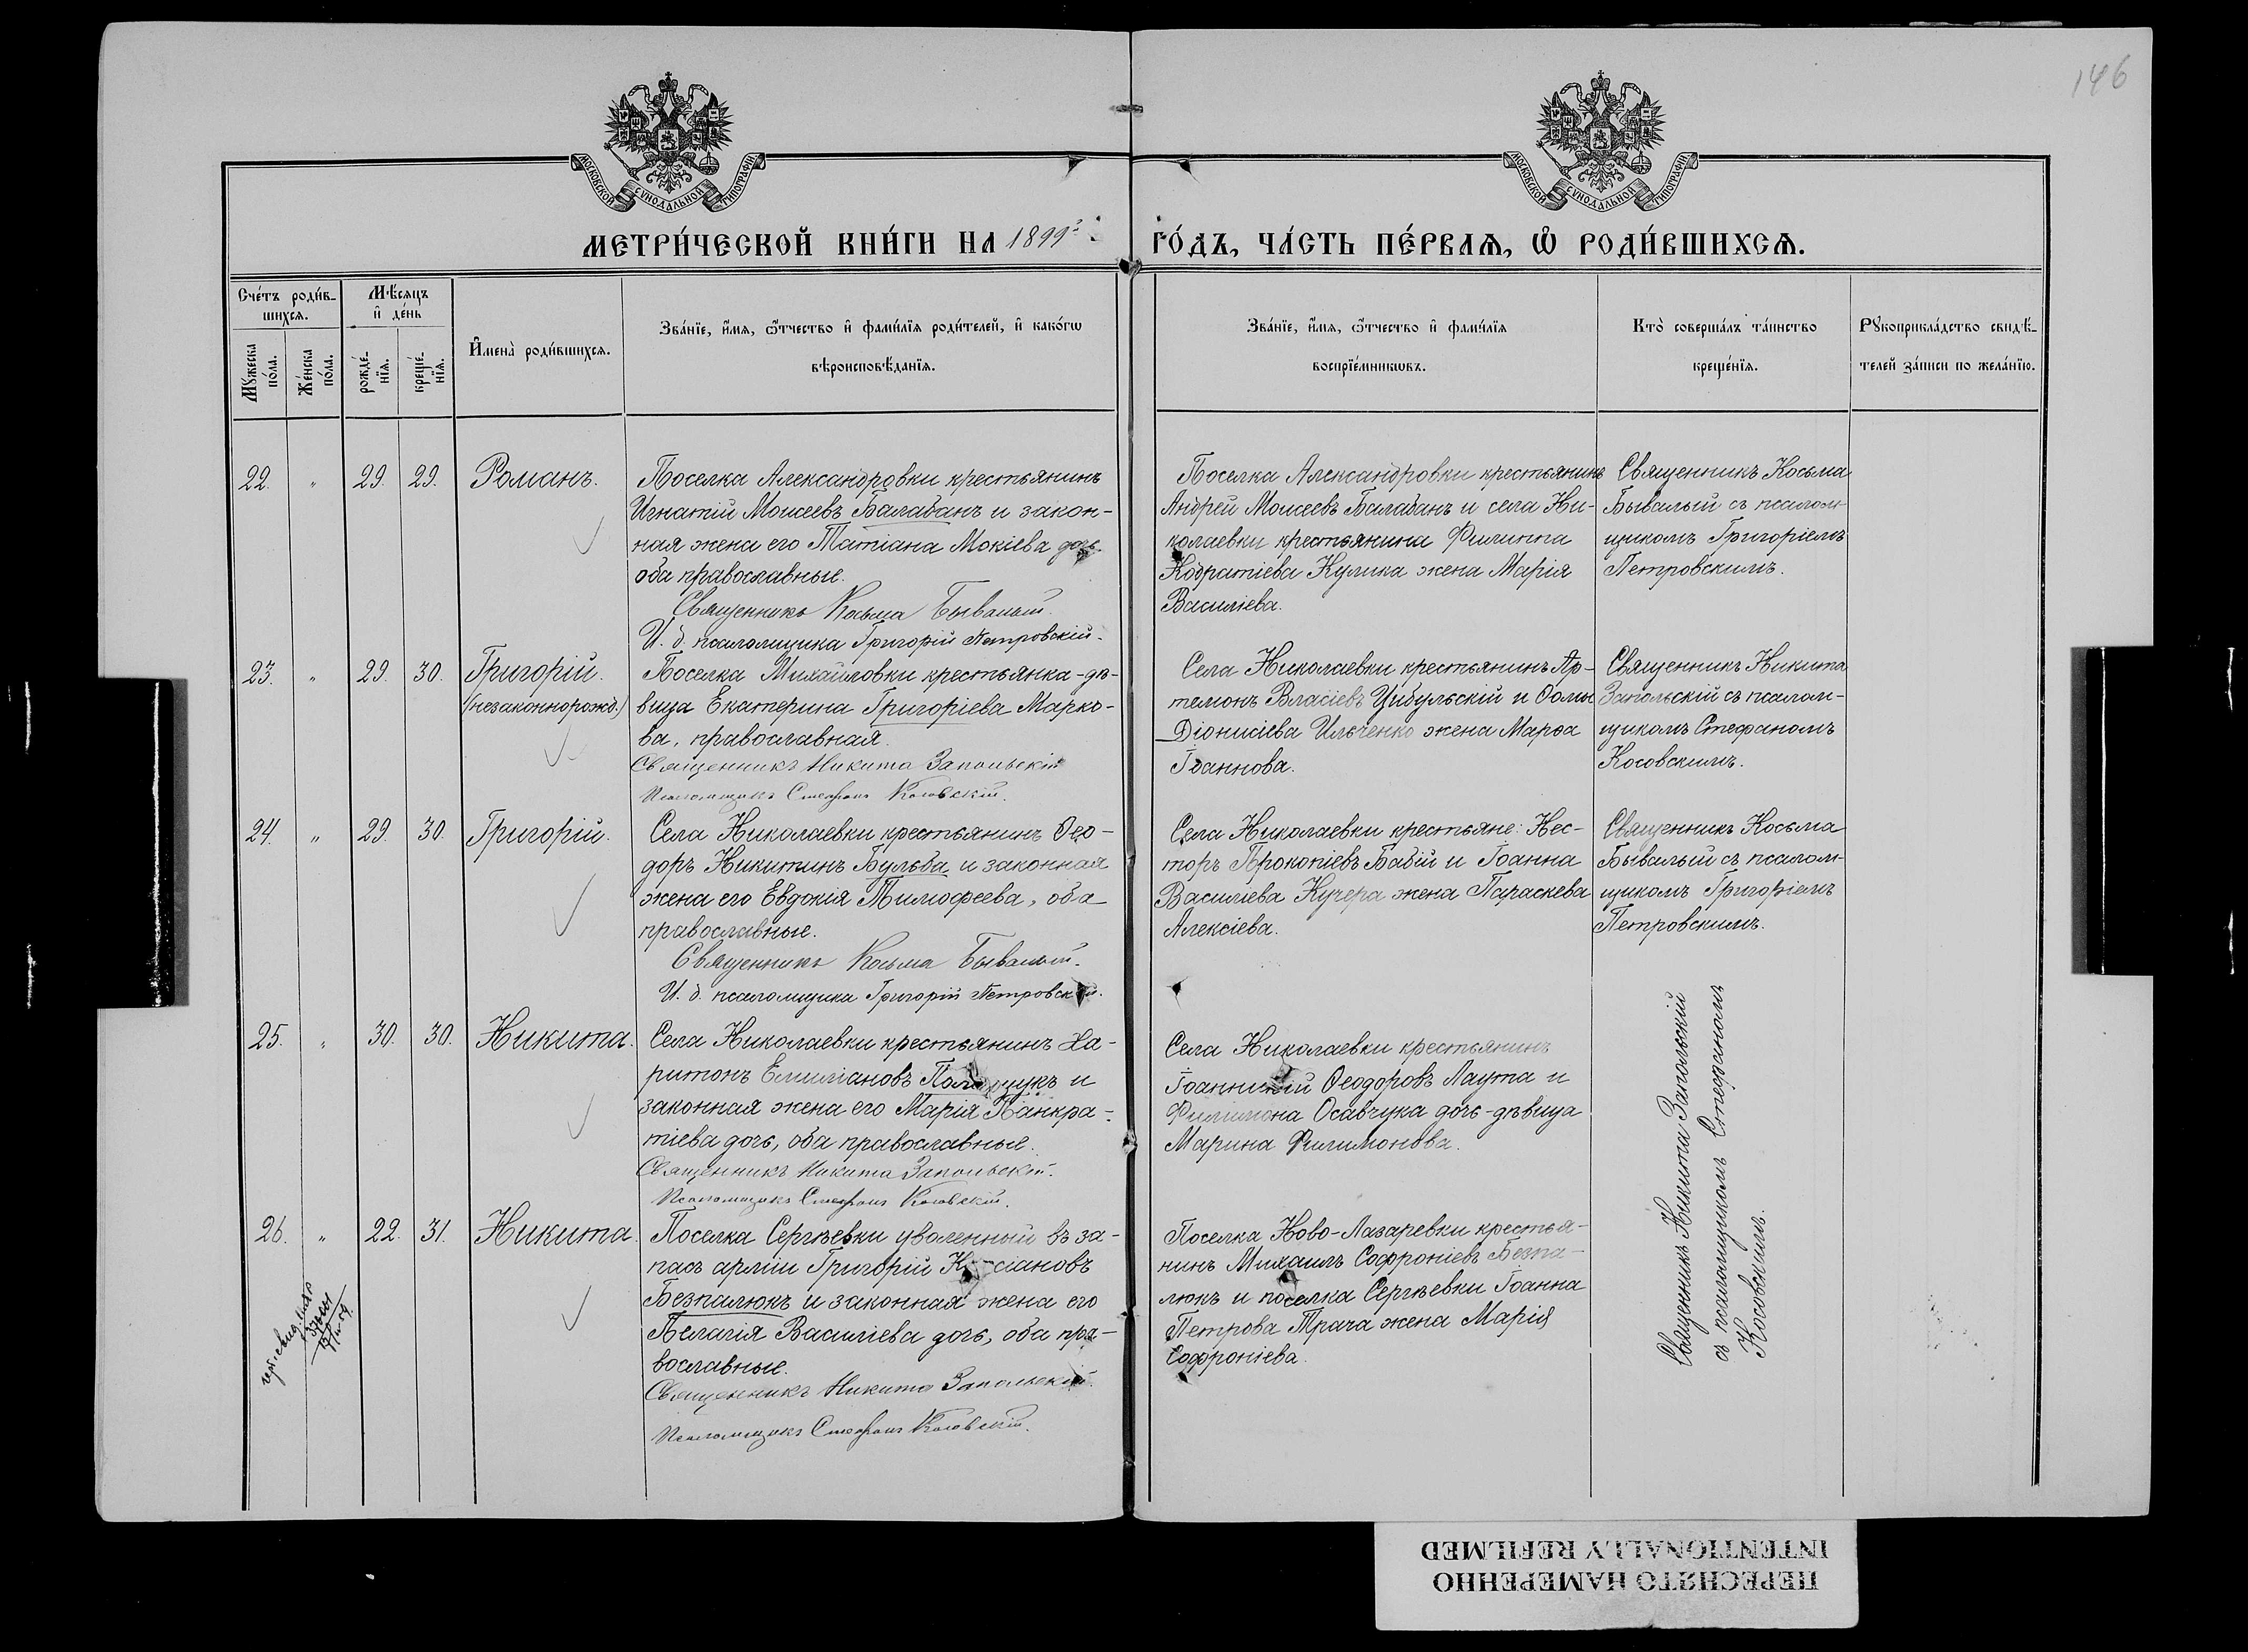 146
МОСКОВСКОЙ СѴНОДАЛЬНОЙ ТИПОГРАФІИ
МОСКОВСКОЙ СѴНОДАЛЬНОЙ ТИПОГРАФІИ
МЕТРИ́ЧЕСКОЙ КНИ́ГИ НА 1899
ГО́ДЪ, ЧА́СТЬ ПЕ́РВАѦ, Ѡ҆ РОДИ́ВШИХСѦ.
Сче́тъ роди́в-
шихсѧ.
Мꙋ́жеска по́ла.
Же́нска по́ла.
Мѣ́сѧцъ
и҆ де́нь
рожде́-нїѧ.
креще́-нїѧ.
И҆мена̀ роди́вшихсѧ.
Зва́нїе, и҆́мѧ, ѻ҆́тчество и҆ фами́лїѧ роди́телей, и҆ како́гѡ
вѣроисповѣ́данїѧ.
Зва́нїе, и҆́мѧ, ѻ҆́тчество и҆ фами́лїѧ
воспрїе́мникѡвъ.
Кто̀ соверша́лъ та́инство
креще́нїѧ.
Рꙋкоприкла́дство свидѣ́-
телей за́писи по жела́нїю.
22. " 29. 29. Романъ.
Поселка Александровки крестьянинъ
Игнатій Моисеевъ Балабанъ и закон-
ная жена его Татіана Мокіева дочь
оба православные.
Священникъ Косьма Бывалый.
И. д. псаломщика Григорій Петровскій.
Поселка Александровки крестьянинъ
Андрей Моисеевъ Балабанъ и села Ни-
колаевки крестьянина Филиппа
Кодратіева Кулика жена Марія
Василіева.
Священникъ Косьма
Бывалый съ псалом-
щикомъ Григоріемъ
Петровскимъ.
23. " 29. 30. Григорій.
(незаконнорожд.)
Поселка Михайловки крестьянка-дѣ-
вица Екатерина Григоріева Марко-
ва, православная.
Священникъ Никита Запольскій
Псаломщикъ Стефанъ Косовскій.
Села Николаевки крестьянинъ Ар-
темонъ Власіевъ Цибульскій и Ѳомы
Діонисіева Ильченко жена Марѳа
Іоаннова.
Священникъ Никита
Запольскій съ псалом-
щикомъ Стефаномъ
Косовскимъ.
24. " 29. 30. Григорій.
Села Николаевки крестьянинъ Ѳео-
доръ Никитинъ Бульба и законная
жена его Евдокія Тимоѳеева, оба
православные.
Священникъ Косьма Бывалый.
И. д. псаломщика Григорій Петровскій.
Села Николаевки крестьяне: Нес-
торъ Прокопіевъ Бабій и Іоанна
Василіева Кучера жена Параскева
Алексіева.
Священникъ Косьма
Бывалый съ псалом-
щикомъ Григоріемъ
Петровскимъ.
25. " 30. 30. Никита.
Села Николаевки крестьянинъ Ха-
ритонъ Емиліановъ и
законная жена его Марія Панкра-
тіева дочь, оба православные.
Священникъ Никита Запольскій.
Псаломщикъ Стефанъ Косовскій.
Села Николаевки крестьянинъ
Іоанникій Ѳеодоровъ Лаута и
Филимона Осавчука дочь-дѣвица
Марина Филимонова.
Священникъ Никита Запольскій
съ псаломщикомъ Стефаномъ
Косовскимъ.
26. " 22. 31. Никита.
Поселка Сергѣевки уволенный въ за-
пасъ арміи Григорій
Безпалюкъ и законная жена его
Пелагія Василіева дочь, оба пра-
вославные.
Священникъ Никита Запольскій.
Псаломщикъ Стефанъ Косовскій.
Поселка Ново-Лазаревки крестья-
нинъ Михаилъ Софроніевъ Безпа-
люкъ и поселка Сергѣевки Іоанна
Петрова Трача жена Марія
Софроніева.
ПЕРЕСНЯТО НАМЕРЕННО
INTENTIONALLY REFILMED